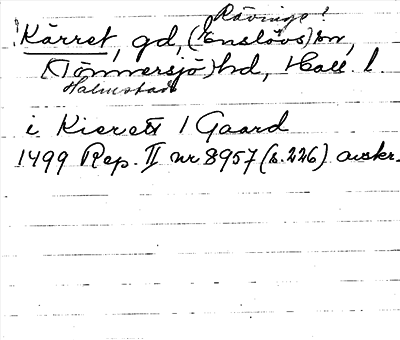 Rävinge!
! Kärret, gd, (Enslövs) sn,
(Tönnersjö) hd, Hall. l.
Halmstads
i Kierett 1 Gaard
1499 Rep. II nr 8957 (s. 226) avskr.